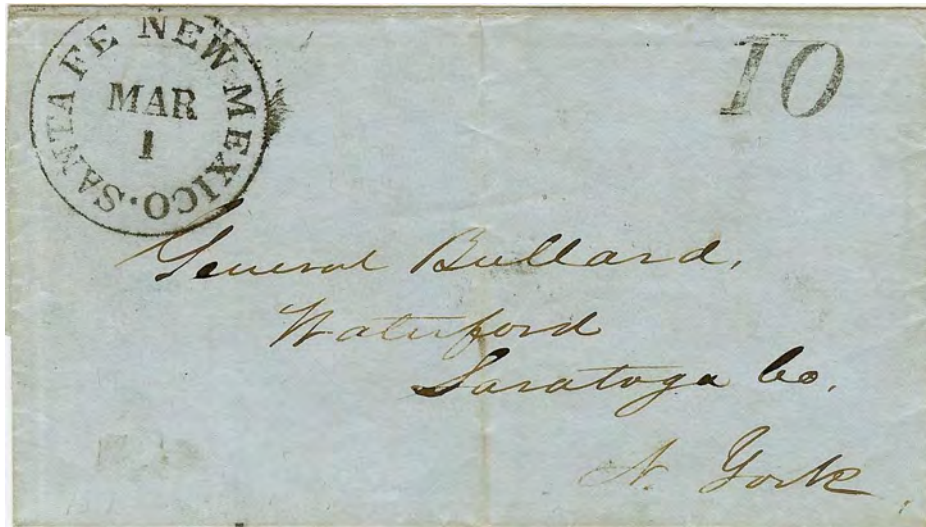 SANTA FE NEW MEXICO.
MAR
1
10
General Bullard,
Waterford
Saratoga Co.
N. York